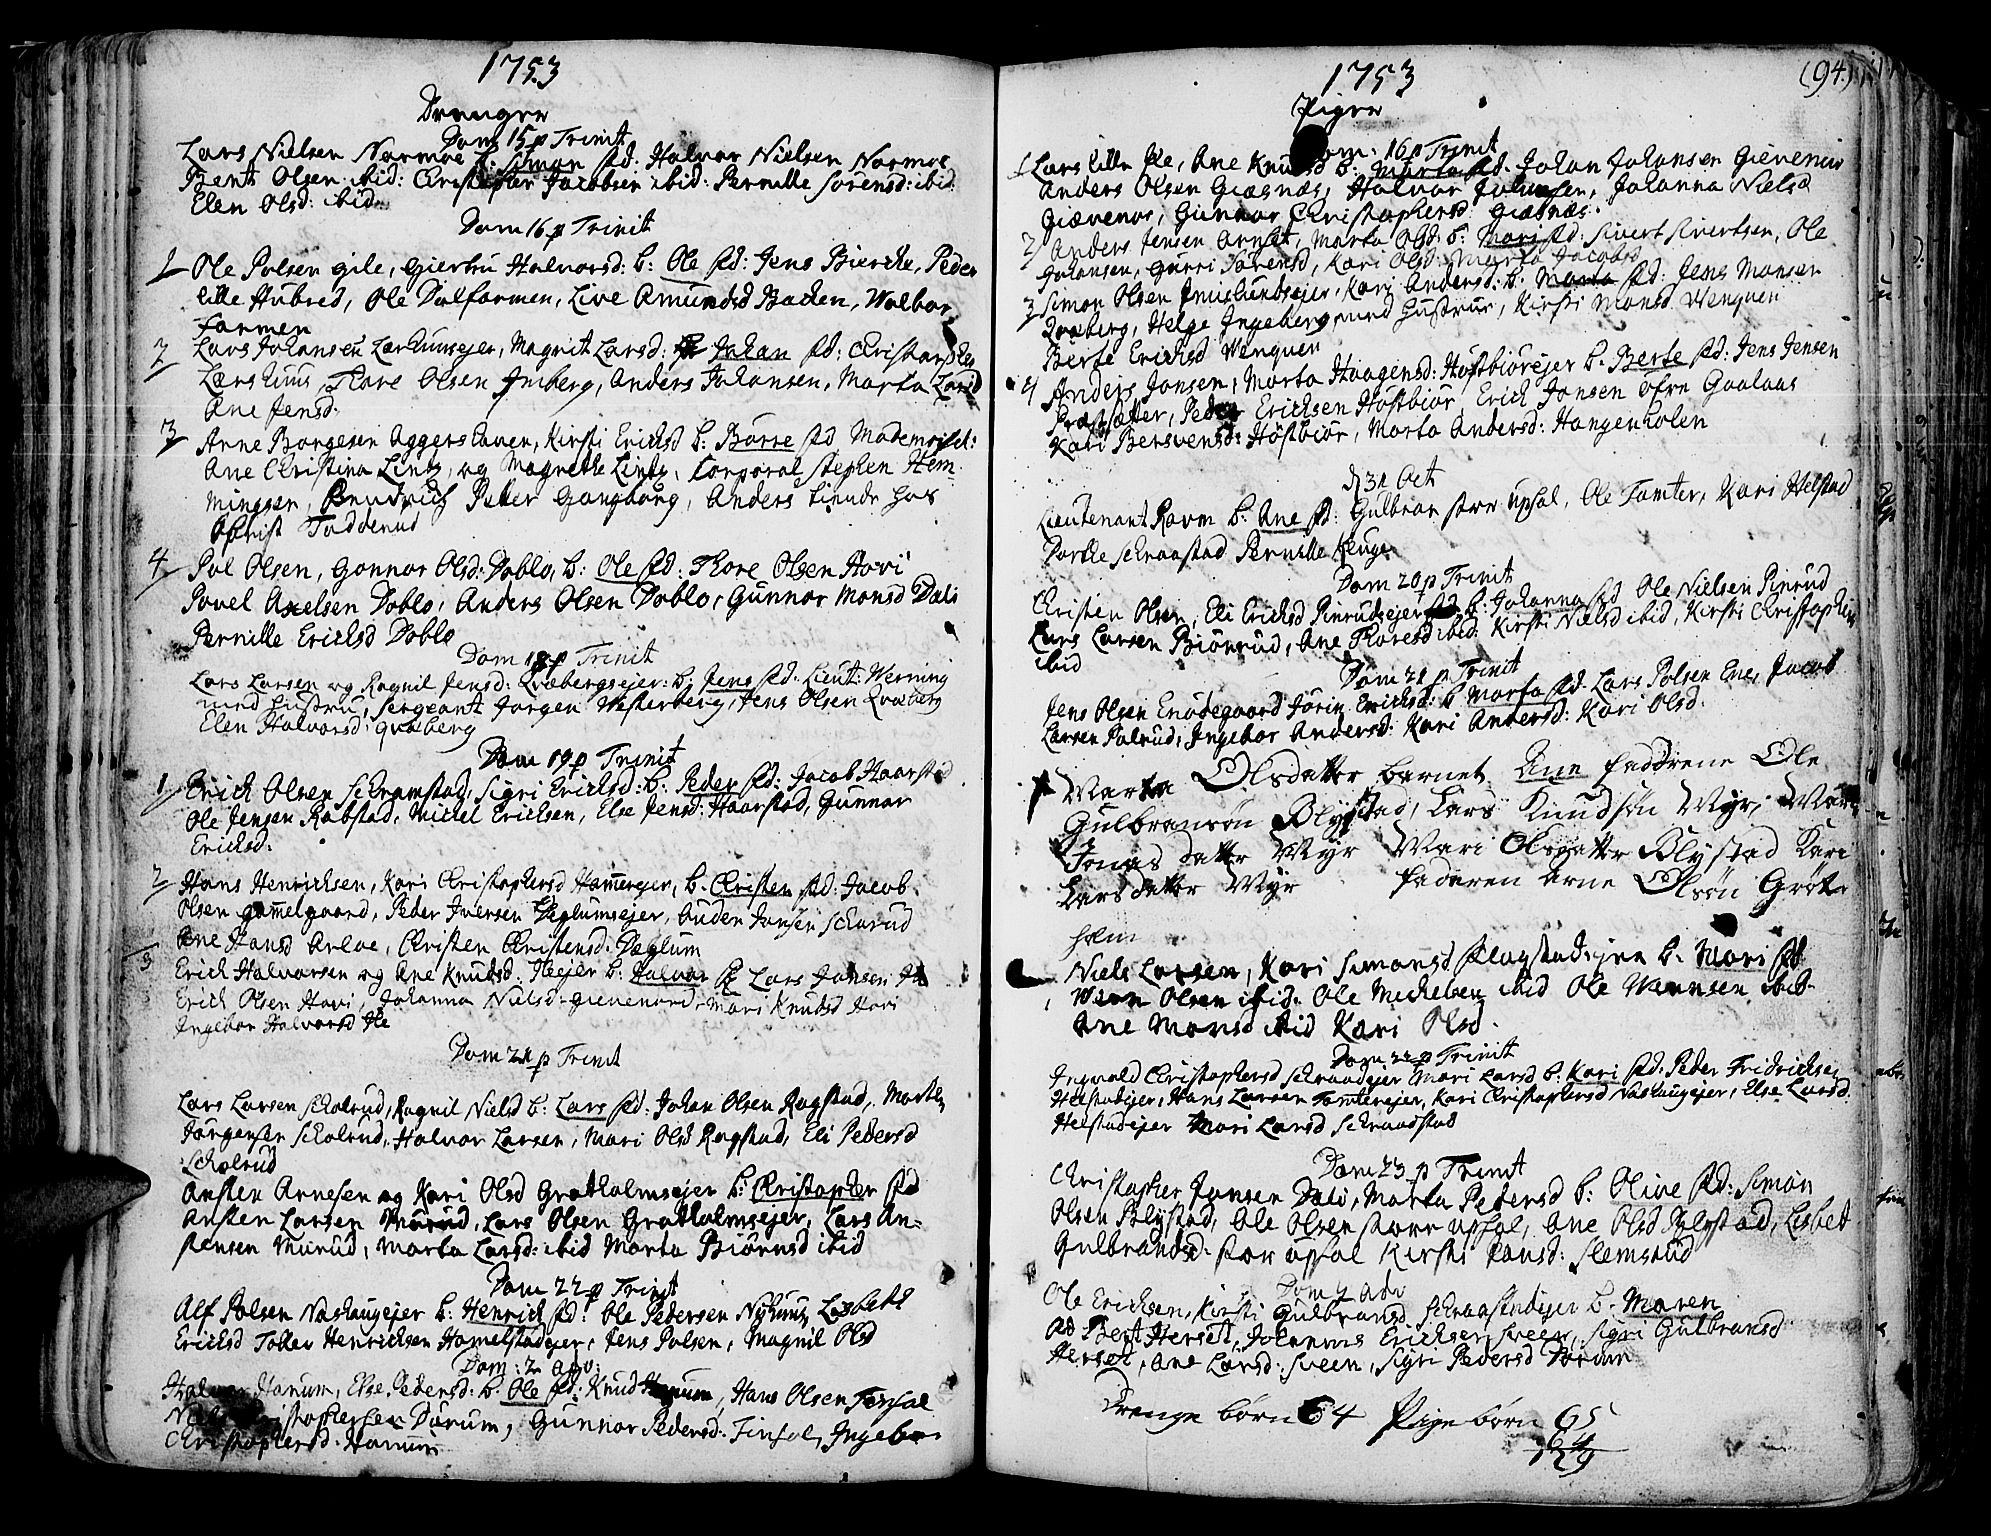 1753
Drenger
Dom 15 p Trinit
Lars Nielsen Narmoe b: Simon fd: Halvor Nielsen Narmoe
Bent Olsen ibid: Christopher Jacobsen ibid: Pernille Sørensd: ibid
Elen Olsd: ibid
Dom 16 p Trinit
1 Ole Polsen Gile, Giertru Halvorsd: b: Ole fd: Jens Biercke, Peder
lille Hubred, Ole Dalfarmen, Live Amundsd Backen, Walbor
Farmen
2 Lars Johansen Lærhuusejer, Magrit Larsd: b Johan fd: Christopher
Lærshuus, Thore Olsen Imberg, Anders Johansen, Marta Larsd
Ane Jensd.
3 Arne Borgesen Aggershauen, Kirsti Ericksd b: Børre fd Mademoisel:
Ane Christina Lintz, og Magrethe Lintz, Corporal Stephen Hem-
mingsen, Peter Gangborg, Anders tiende hos
Obrist Todderud
4 Pol Olsen, Gonnor Olsd: Doblo, b: Ole fd: Thore Olsen Hovi
Povel Axelsen Doblo, Anders Olsen Doblo, Gunnor Monsd Dæli
Pernille Ericksd Doblo
Dom 18 p Trinit
Lars Larsen og Ragnil Jensd: Qvæbergsejer: b: Jens fd. Lieut: Werning
med hustru, Sergeant Jørgen Westerberg, Jens Olsen Qvæberg
Elen Halvorsd: Qvæberg
Dom 19 p Trinit
1 Erick Olsen Schramstad, Sigri Ericksd: b: Peder fd: Jacob Haarstad
Ole Jensen Rabstad, Mickel Ericksen, Else Jensd: Haarstad, Gunnor
Ericksd.
2 Hans Henricksen, Kari Christophersd Hamerejer, b. Christen fd: Jacob
Olsen Gammelgaard, Peder Iversen Dæglumsejer, Auden Jonsen Scharud
Ane Hansd Arloe, Christen Christensd: Dæglum
3 Erick Halvorsen og Ane Knudsd. Ileejer b: Halvor fd Lars Johnsen Ile
Erick Olsen Hovi, Johanna Nielsd Gievenord, Mari Knudsd Hovi
Ingebor Halvorsd Ile
Dom 21 p Trinit
Lars Larsen Scholrud, Ragnil Nielsd b: Lars fd: Johan Olsen Rogstad, Morten
Jørgensen Scholrud, Halvor Larsen, Mari Olsd Rogstad, Eli Pedersd
Scholrud
Ansten Arnesen og Kari Olsd Grøtholmsejer b: Christopher fd
Ansten Larsen Murud, Lars Olsen Grøtholmsejer, Lars An-
stensen Murud, Marta Larsd: ibid Marta Biørnsd ibid
Dom 22 p Trinit
Alf Polsen Nashaugejer b: Henrich fd: Ole Pedersen Nyhuus, Lisbeth
Ericksd Tollev Henricksen Homelstadejer, Jens Polsen, Magnil Olsd
Dom: 2 Adv:
Halvor Hanum, Else Pedersd: b: Ole fd: Knud Hanum, Hans Olsen Finsal
Christophersen Dørum, Gunnor Pedersd: Finsal, Ingebor
Christophersd. Hanum
1753
(94)
Piger
Dom: 16 p Trinit
1 Lars lille Ile, Ane Knudsd b: Marta fd. Johan Johansen Gievenor
Anders Olsen Giæsnæs, Halvor Johnsen, Johanna Nielsd
Giævenor, Gunnor Christophersd: Giæsnæs.
2 Anders Jensen Arnset, Marta Olsd: b: Mari fd: Sivert Sivertsen, Ole
Johansen, Gurri Sørensd, Kari Olsd: Marta Jacobsd
3 Simon Olsen Imislundsejer, Kari Andersd: b. Marta fd: Jens Monsen
Qvæberg, Helge Ingeberg med hustrue, Kirsti Monsd Wenquen
Berte Ericksd Wenquen
4 Anders Jonsen, Marta Haagensd: Høstbiørejer b. Berte fd: Jens Jensen
Præstsæter, Peder Ericksen Høstbiør, Erick Jonsen øfre Gaalaas
Kari Bersvensd: Høstbiør, Marta Andersd: Hangenholen
d 31 Oct
Lieutenant Ravm b: Ane fd: Gulbran store Upsal, Ole Tomter, Kari Helstad
Dorthe Schraastad Pernille Klinge
Dom 20 p Trinit
Christen Olsen, Eli Ericksd Pinrudsejer b: Johanna fd Ole Nielsen Pinrud
Lars Larsen Biønrud, Ane Thoresd ibid Kirsti Nielsd ibid, Kirsti Christophersd
ibid
Dom 21 p Trinit
Jens Olsen Enødegaard Jørin Ericksd: b Marta fd. Lars Polsen Ene, Jacob
Larsen Palrud, Ingebor Andersd: Kari Andersd: Kari Olsd.
Marta Olsdatter barnet Ane faddrene Ole
Gulbransøn Blystad, Lars Knudsøn Myr, Mari
Jonas datter Myr Mari Olsdatter Blystad Kari
Larsdatter Myr faderen Arne Olsøn Grøt
holm
Niels Larsen, Kari Simonsd Flagstadejer b. Mari fd
Olsen ibid. Ole Mickelsen ibid Ole Monsen ibid.
Ane Monsd ibid Kari Olsd.
Dom 22 p Trinit
Ingvold Christophersd Schraadejer Mari Larsd b. Kari fd. Peder Fridricksen
Helstadejer, Hans Larsen Tomterejer, Kari Christophersd Nashaugejer, Else Larsd
Helstadejer Mari Larsd Schraastad
Dom 23 p Trinit
Christopher Jonsen Dæli, Marta Pedersd b: Olive fd: Simon
Olsen Blystad, Ole Olsen store Upsal, Ane Olsd Blystad, Lisbet
Gulbrandsd. stor Upsal Kirsti Hansd: Slemsrud
Dom 2 Adv
Ole Ericksen, Kirsti Gulbransd. Schraastadejer b. Maren
Bent Herset, Johannes Ericksen Sveen, Sigri Gulbransd
Herset, Ane Larsd: Sveen, Sigri Pedersd Dørum
Drenge børn 64 Pige børn 65
64
129